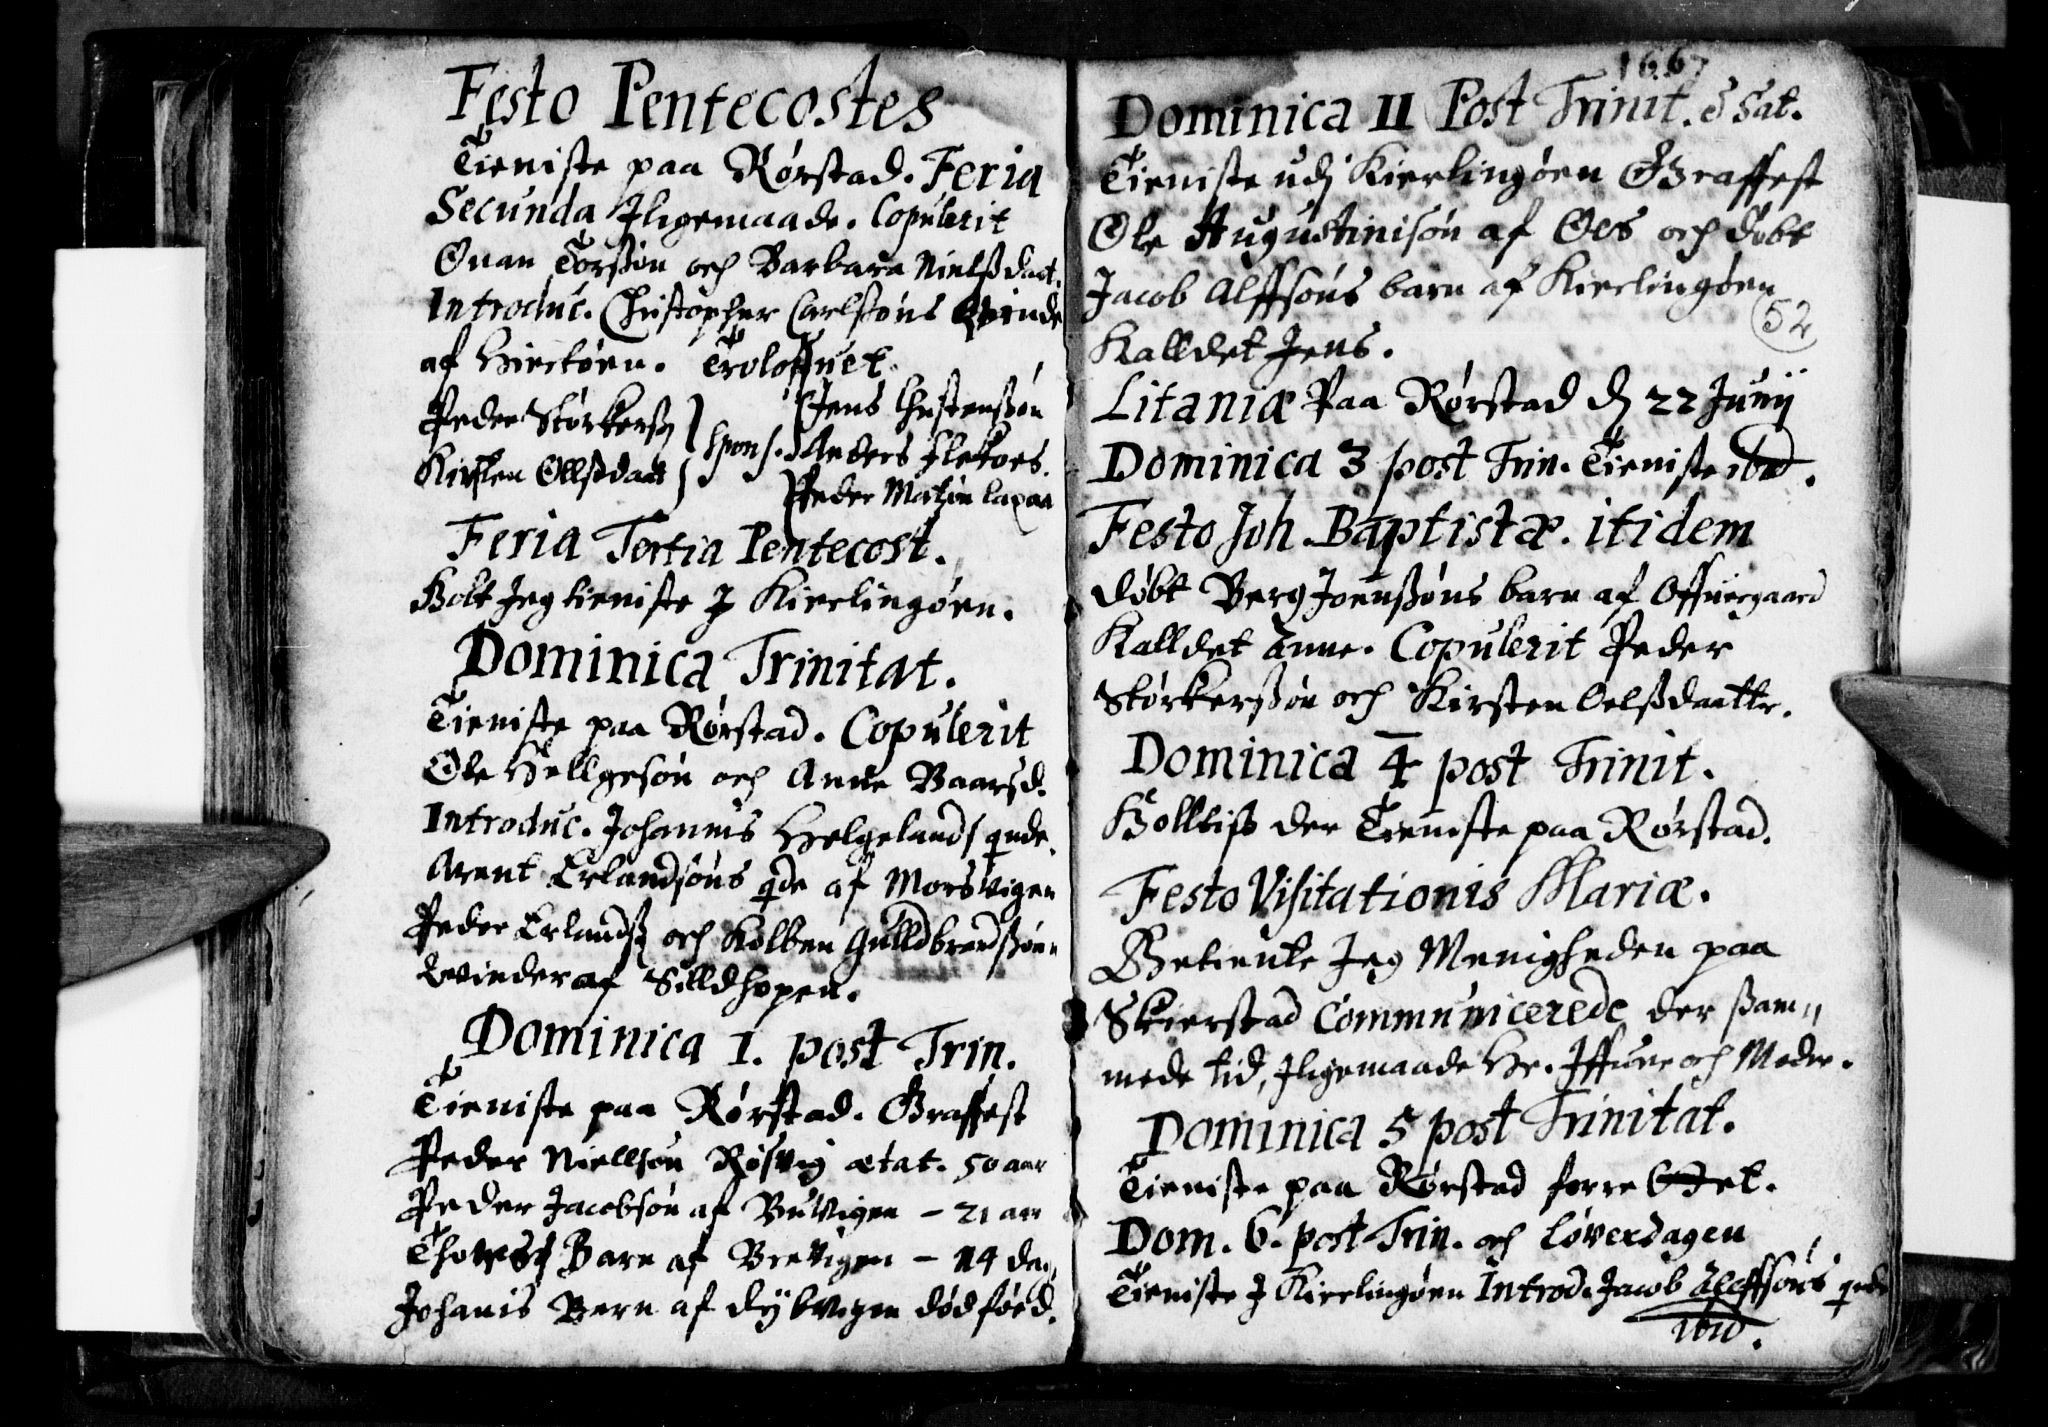 Festo Pentecostes
Tieniste paa Rørstad. Feria
Secunda Iligemaade. Copulerit
Onan Torßøn och Barbara Nielßdaat.
Introduc. Christopher Carlsøns Qvinde
af Hiertøen. Troloffuet.
Peder Størkerß
Jens Christenßøn
spons. Anders
Kirsten Ollßdaat
Peder
Feria Tertia Pentecost.
Holt Jeg tieniste J Kierlingøen.
Dominica Trinitat.
Tieniste paa Rørstad. Copulerit
Ole Hellgesøn och Anne Baarsd.
Introduc. Johannis Helgelands qude.
Arent Erlandsøns qde af Morsvigen
Peder Erlandß och Kolben Gulldbrandßøns
Qvinder af Silldhopen.
Dominica 1. post Trin.
Tieniste paa Rørstad. Graffest
Peder Niellsøn Røsvig ætat. 50 aar
Peder Jacobsøn af Buvigen - 21 aar
Barn af Brevigen - 14 dag
Johanis Barn af dybvigen død føed.
1667
Dominica II Post Trinit. & Sat.
Tieniste udj Kierlingøen Graffest
Ole Augustinisøn af Oes och døbt
Jacob Alffsøns barn af Kierlingøen
52
Kalldet Jens.
Litaniæ Paa Rørstad d 22 Junij
Dominica 3 post Trin. Tieniste ibid.
Festo Joh. Baptistæ. itidem
døbt Berg Joenßøns barn af Offuergaard
Kalldet Anne. Copulerit Peder
Størkerßøn och Kirsten Oelßdaatter.
Dominica 4 post Trinit.
Holltis der Tieniste paa Rørstad.
Festo Visitationis Mariæ.
Betiente Jeg Menigheden paa
Skierstad Communicerede der ßam„
mede tid, Iligemaade Hr. Iffuer och Moder.
Dominica 5 post Trinitat.
Tieniste paa Rørstad forre
Dom. 6. post Trin. och Løverdagen
Tieniste J Kierlingøen Introd. Jacob Alffsøns qude
ibid.